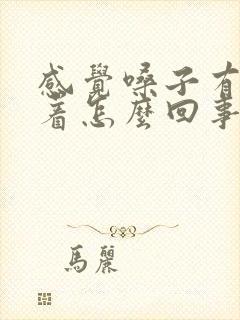 感覺嗓子有
着怎麼回事
馬麗